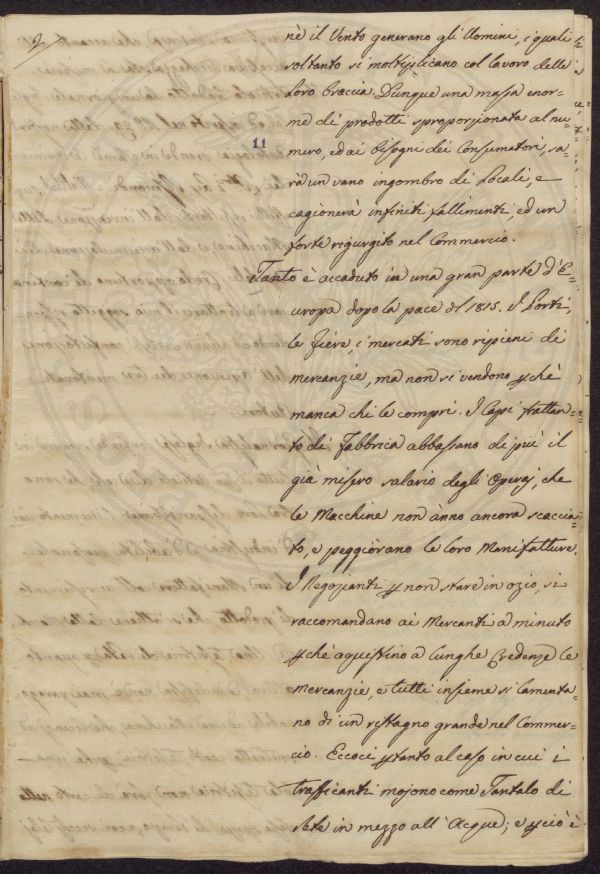 2
nè il Vento generano gli Uomini, i quali
soltanto si moltiplicano col lavoro delle
loro braccia. Dunque una massa enor-
me di prodotti sproporzionata al nu-
11
mero, ed ai bisogni dei Consumatori, sa-
rà un vano ingombro di Locali, e
cagionerà infiniti fallimenti, ed un
forte rigurgito nel Commercio.
Tanto è accaduto in una gran parte d'Eu-
ropa dopo la pace del 1815. I Porti,
le fiere, i mercati sono ripieni di
mercanzie, ma non si vendono pchè
manca chi le compri. I Capi frattan-
to di Fabbrica abbassano di più il
già misero salario degli Operaj, che
le Macchine non ànno ancora scaccia-
to, e peggiorano le loro Manifatture.
I Negozianti p non stare in ozio, si
raccomandano ai Mercanti a minuto
pchè aquistino a lunghe Credenze le
mercanzie, e tutti insieme si lamenta-
no di un ristagno grande nel Commer-
cio. Eccoci ptanto al caso in cui i
trafficanti mojono come Tantalo di
sete in mezzo all'Acque; e pciò è